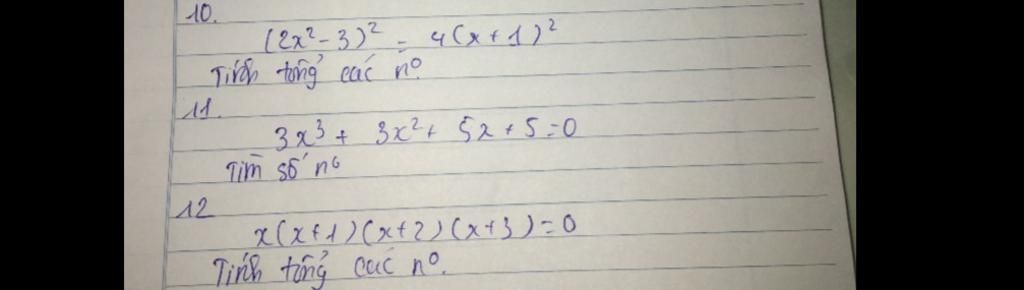 10.
(2x² - 3)² = 4(x + 1)²
Tính tổng các nº
11.
3x³ + 3x² + 5x + 5 = 0
Tìm số nº
12
x(x+1)(x+2)(x+3) = 0
Tính tổng các nº.